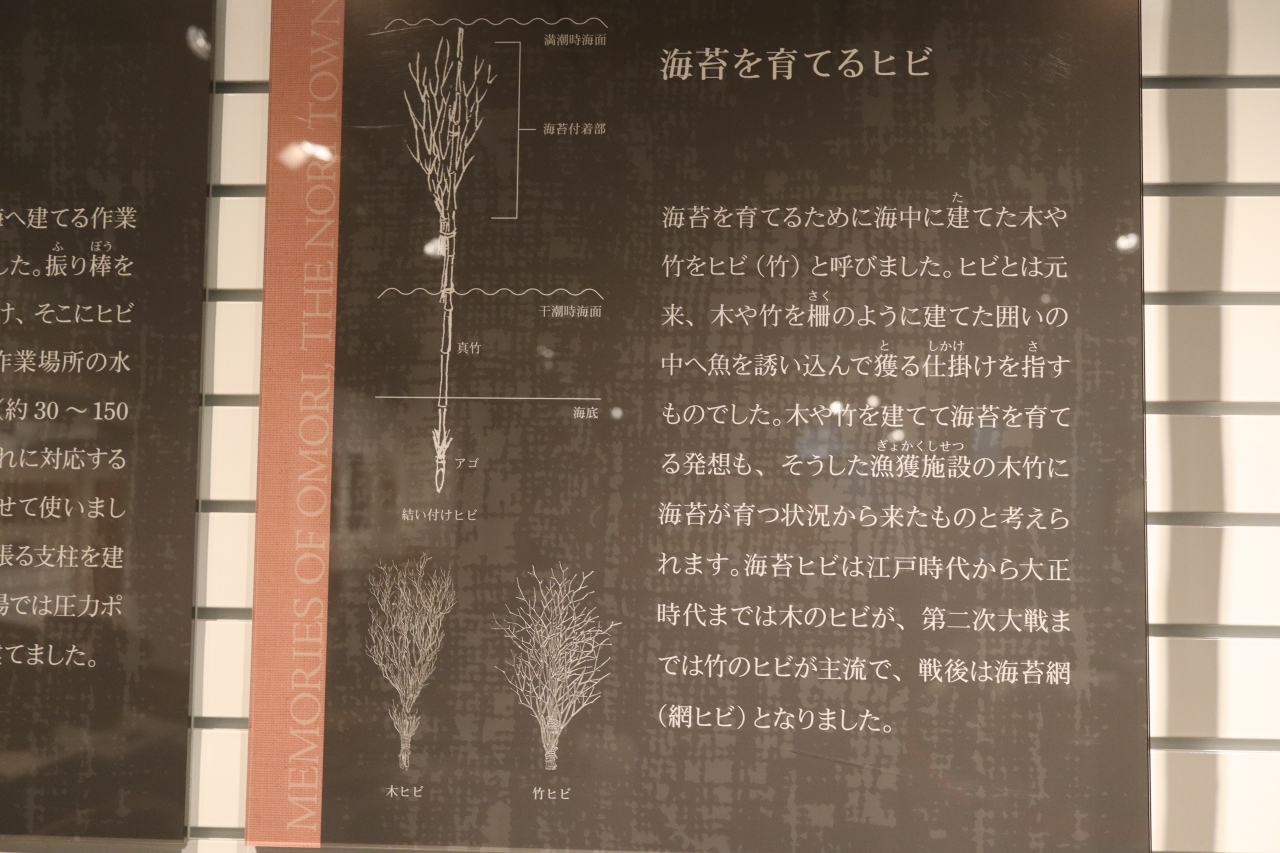 へ建てる作業
した。振り棒を
ふ ぼう
け、そこにヒビ
作業場所の水
（約 30 〜 150
れに対応する
せて使いまし
張る支柱を建
場では圧力ポ
てました。
MEMORIES OF OMORI, THE NORI TOWN
満潮時海面
海苔付着部
干潮時海面
真竹
海底
アゴ
結い付けヒビ
木ヒビ
竹ヒビ
海苔を育てるヒビ
た
海苔を育てるために海中に建てた木や
竹をヒビ（竹）と呼びました。ヒビとは元
さく
来、木や竹を柵のように建てた囲いの
と しかけ さ
中へ魚を誘い込んで獲る仕掛けを指す
ものでした。木や竹を建てて海苔を育て
ぎょかくしせつ
る発想も、そうした漁獲施設の木竹に
海苔が育つ状況から来たものと考えら
れます。海苔ヒビは江戸時代から大正
時代までは木のヒビが、第二次大戦ま
では竹のヒビが主流で、戦後は海苔網
（網ヒビ）となりました。